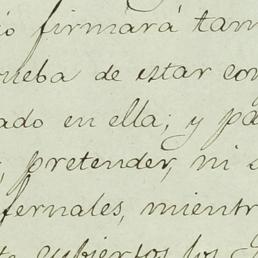 ó firmará tam
rueba de estar con
ado en ella; y pa
, pretender, ni
fernales, mientr
cubiertos los